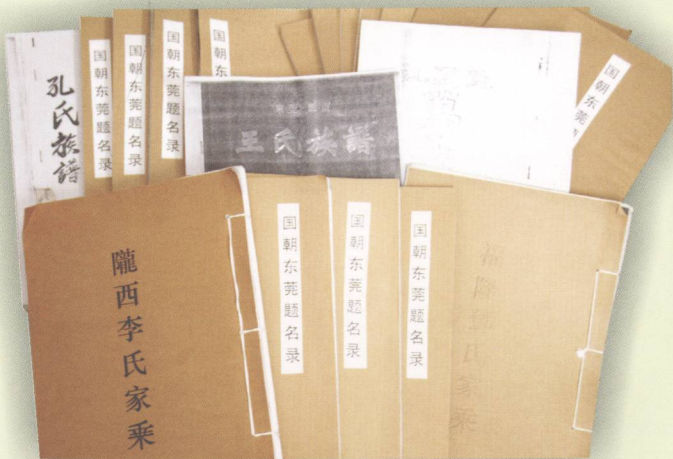 孔氏族譜
国朝东莞题名录
国朝东莞题名录
国朝东莞题名录
国朝东
王氏族譜
国朝东莞
隴西李氏家乘
国朝东莞题名录
国朝东莞题名录
国朝东莞题名录
氏家乘